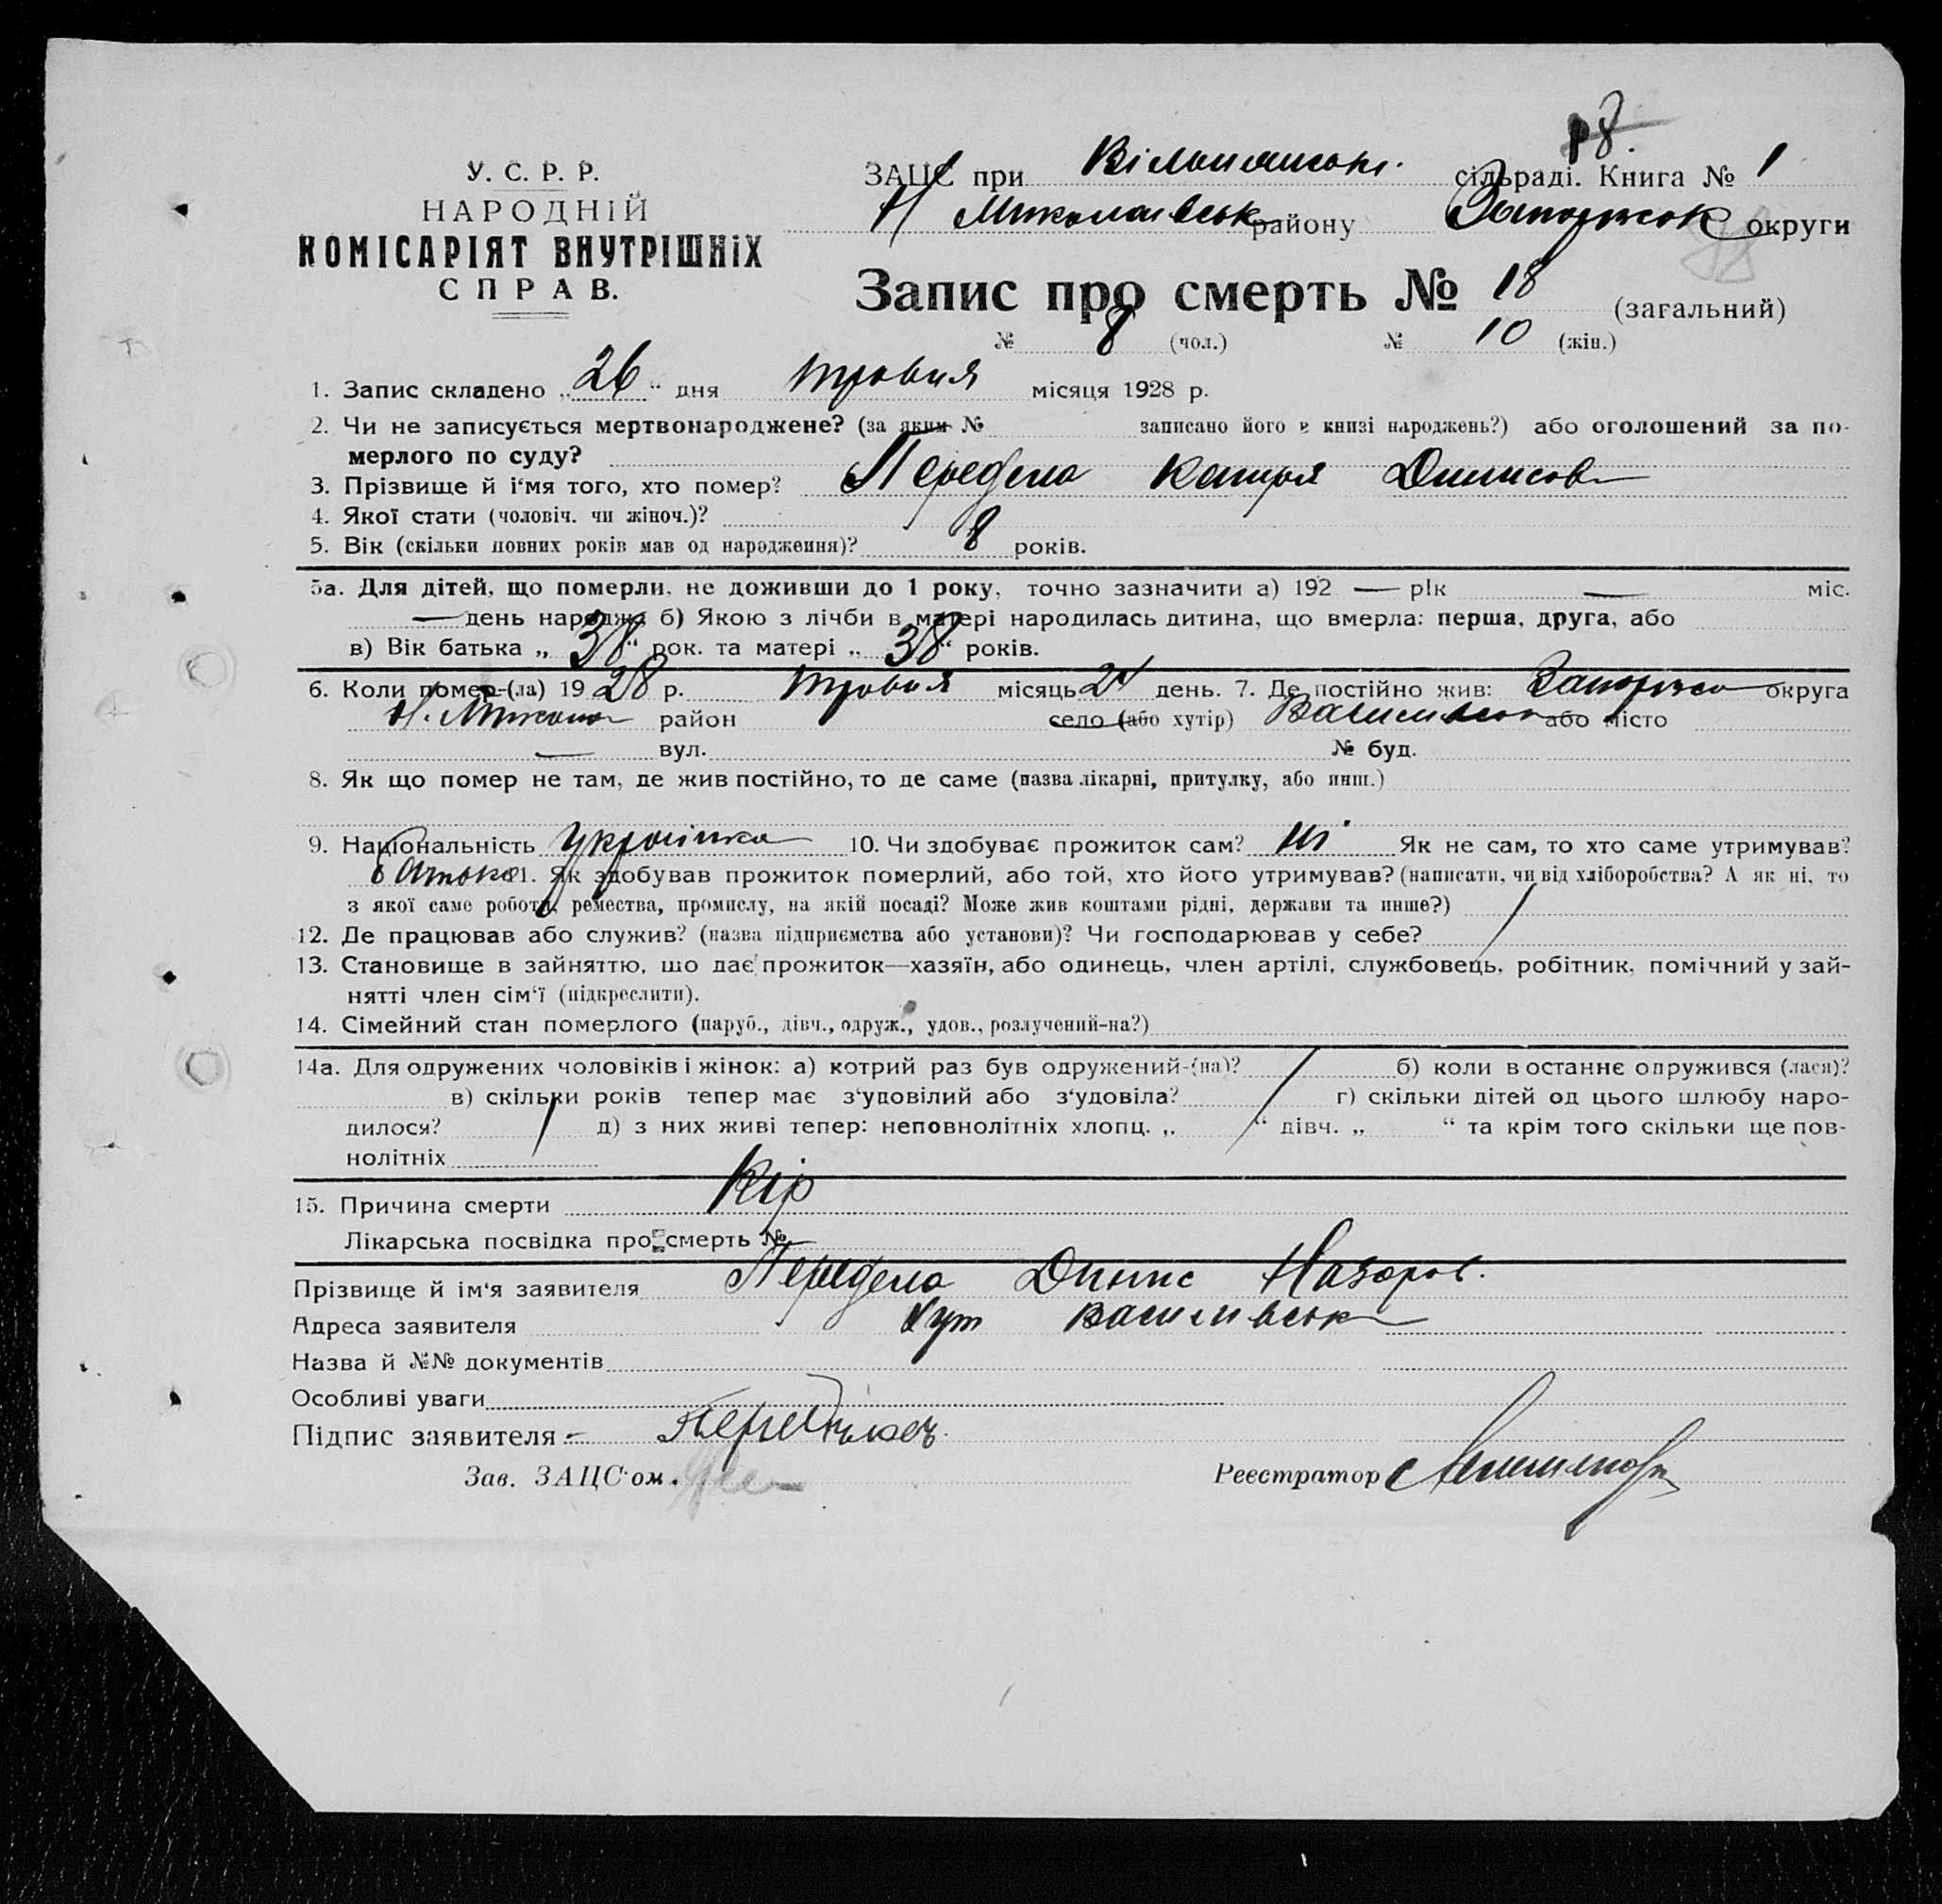 р8.
У. С. Р. Р.
НАРОДНІЙ
КОМІСАРІЯТ ВНУТРІШНІХ
СПРАВ.
ЗАЦС при сільраді. Книга № 1
Н Миколаївськ району Запорізьк округи
Запис про смерть № 18 (загальний)
№ 8 (чол.) № 10 (жін.)
1. Запис складено „ 26 “ дня травня місяця 1928 р.
2. Чи не записується мертвонароджене? (за яким № записано його в книзі народжень?) або оголошений за по-
мерлого по суду?
3. Прізвище й і‘мя того, хто помер? Передела Катря Динисов
4. Якої стати (чоловіч. чи жіноч.)?
5. Вік (скільки повних років мав од народження)? 8 років.
5а. Для дітей, що померли, не доживши до 1 року, точно зазначити а) 192 — рік — міс.
— день народж б) Якою з лічби в матері народилась дитина, що вмерла: перша, друга, або
в) Вік батька „ 38 “ рок. та матері „ 38 “ років.
6. Коли помер-(ла) 19 28 р. травня місяць 24 день. 7. Де постійно жив: Запоріжс округа
Н. Микола район село (або хутір) Василівськ або місто
— вул. № буд.
8. Як що помер не там, де жив постійно, то де саме (назва лікарні, притулку, або инш.)
9. Національність Українка 10. Чи здобуває прожиток сам? ні Як не сам, то хто саме утримував?
батько 11. Як здобував прожиток померлий, або той, хто його утримував? (написати, чи від хліборобства? А як ні, то
з якої саме роботи, ремества, промислу, на якій посаді? Може жив коштами рідні, держави та инше?)
12. Де працював або служив? (назва підприємства або установи)? Чи господарював у себе?
13. Становище в зайняттю, що дає прожиток—хазяїн, або одинець, член артілі, службовець, робітник, помічний у зай-
нятті член сім‘ї (підкреслити).
14. Сімейний стан померлого (паруб., дівч., одруж., удов., розлучений-на?)
14а. Для одружених чоловіків і жінок: а) котрий раз був одружений-(на)? б) коли в останнє одружився (лася)?
в) скільки років тепер має з‘удовілий або з‘удовіла? г) скільки дітей од цього шлюбу наро-
дилося? д) з них живі тепер: неповнолітніх хлопц. „ “ дівч. „ “ та крім того скільки ще пов-
нолітніх
15. Причина смерти Кір
Лікарська посвідка про смерть №
Прізвище й ім‘я заявителя Передела Динис Назаров.
Адреса заявителя Хут Василівськ
Назва й №№ документів
Особливі уваги
Підпис заявителя -
Зав. ЗАЦС‘ом.
Реестратор